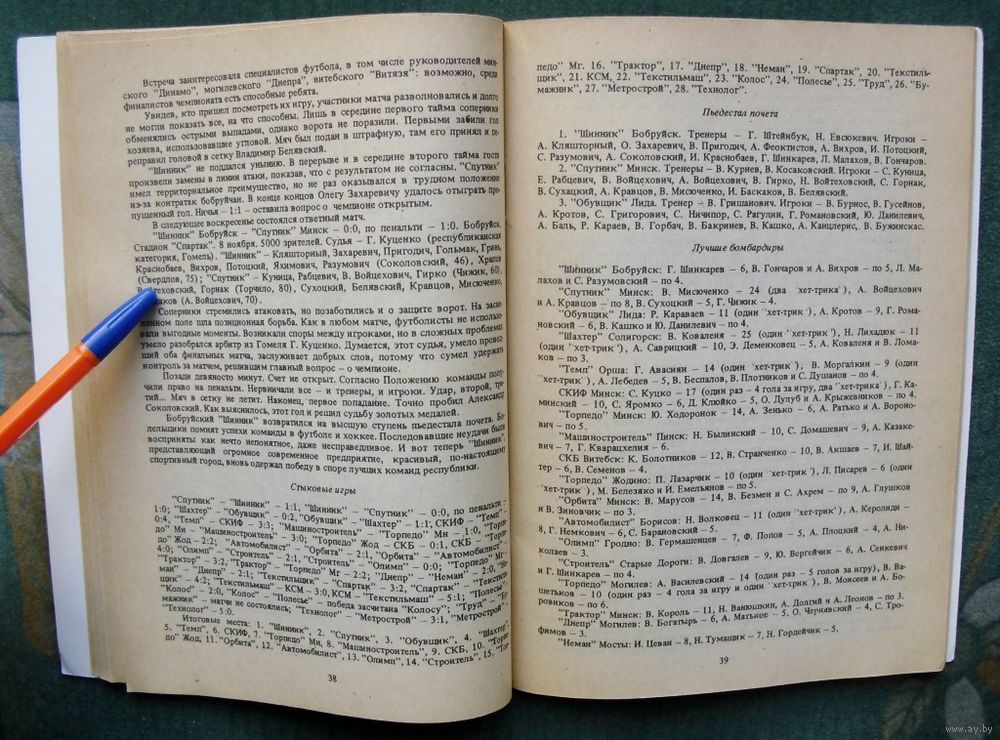 Встреча заинтересовала специалистов футбола, в том числе руководителей мин-
ского "Динамо", могилевского "Днепра", витебского "Витязя": возможно, среди
финалистов чемпионата есть способные ребята.
Увидев, кто пришел посмотреть их игру, участники матча разволновались и долго
не могли показать все, на что способны. Лишь в середине первого тайма соперники
обменялись острыми выпадами, однако ворота не поразили. Первыми забили гол
хозяева, использовавшие угловой. Мяч был подан в штрафную, там его принял и пе-
реправил головой в сетку Владимир Белявский.
"Шинник" не поддался унынию. В перерыве и в середине второго тайма гости
произвели замены в линии атаки, показав, что с результатом не согласны. "Спутник"
имел территориальное преимущество, но не раз оказывался в трудном положении
из-за контратак бобруйчан. В конце концов Олегу Захаревичу удалось отыграть про-
пущенный гол. Ничья – 1:1 – оставила вопрос о чемпионе открытым.
В следующее воскресенье состоялся ответный матч.
"Шинник" Бобруйск – "Спутник" Минск – 0:0, по пенальти – 1:0. Бобруйск.
Стадион "Спартак". 8 ноября. 5000 зрителей. Судья – Г. Куценко (республиканская
категория, Гомель). "Шинник" – Кляшторный, Захаревич, Пригодич, Гольмак, Гринь,
Краснобаев, Вихров, Потоцкий, Яхимович, Разумович (Соколовский, 46), Храпов
(Свердлов, 75); "Спутник" – Куница, Рабцевич, В. Войцехович, Гирко (Чижик, 60),
Горнак (Торчило, 80), Сухоцкий, Белявский, Кравцов, Мисюченко,
(А. Войцехович, 70).
Соперники стремились атаковать, но позаботились и о защите ворот. На засне-
женном поле шла позиционная борьба. Как в любом матче, футболисты не использо-
вали выгодные моменты. Возникали споры между игроками, но в сложных проблемах
умело разобрался арбитр из Гомеля Г. Куценко. Думается, этот судья, умело провед-
ший оба финальных матча, заслуживает добрых слов, потому что сумел удержать
контроль за матчем, решившим главный вопрос – о чемпионе.
Позади девяносто минут. Счет не открыт. Согласно Положению команды полу-
чили право на пенальти. Нервничали все – и тренеры, и игроки. Удар, второй, тре-
тий... Мяч в сетку не летит. Наконец, первое попадание. Точно пробил Александр
Соколовский. Как выяснилось, этот гол и решил судьбу золотых медалей.
Бобруйский "Шинник" возвратился на высшую ступень пьедестала почета. Бо-
лельщики помнят успехи команды в футболе и хоккее. Последовавшие неудачи были
восприняты как нечто непонятное, даже несправедливое. И вот теперь "Шинник",
представляющий огромное современное предприятие, красивый, по-настоящему
спортивный город, вновь одержал победу в споре лучших команд республики.
Стыковые игры
"Спутник" – "Шинник" – 1:1, "Шинник" – "Спутник" – 0:0, по пенальти –
1:0; "Шахтер" – "Обувщик" – 0:2, "Обувщик" – "Шахтер" – 1:1; СКИФ – "Темп" –
0:4, "Темп" – СКИФ – 3:3; "Машиностроитель" – "Торпедо" Мн – 1:0, "Торпе-
до" Мн – "Машиностроитель" – 3:0; "Торпедо" Жод – СКБ – 0:1, СКБ – "Торпе-
до" Жод – 2:2; "Автомобилист" – "Орбита" – 2:1, "Орбита" – "Автомобилист" –
4:0; "Олимп" – "Строитель" – 2:1, "Строитель" – "Олимп" – 0:0; "Торпедо" Мг –
"Трактор" – 3:2, "Трактор" – "Торпедо" Мг – 2:2; "Днепр" – "Неман" – 2:0, "Не-
ман" – "Днепр" – 2:1; "Текстильщик" – "Спартак" – 3:2, "Спартак" – "Текстиль-
щик" – 4:2; "Текстильмаш" – КСМ – 3:0, КСМ – "Текстильмаш" – 5:1; "Полесье" –
"Колос" – 2:0, "Колос" – "Полесье" – победа засчитана "Колосу"; "Труд" – "Бу-
мажник" – матчи не состоялись; "Технолог" – "Метрострой" – 3:1, "Метрострой" –
"Технолог" – 5:0.
Итоговые места: 1. "Шинник", 2. "Спутник", 3. "Обувщик", 4. "Шахтер",
5. "Темп", 6. СКИФ, 7. "Торпедо" Мн, 8. "Машиностроитель", 9. СКБ, 10. "Торпе-
до" Жод, 11. "Орбита", 12. "Автомобилист", 13. "Олимп", 14. "Строитель", 15. "Тор-
38
педо" Мг. 16. "Трактор", 17. "Днепр", 18. "Неман", 19. "Спартак", 20. "Текстиль-
щик", 21. КСМ, 22. "Текстильмаш", 23. "Колос", 24. "Полесье", 25. "Труд", 26. "Бу-
мажник", 27. "Метрострой", 28. "Технолог".
Пьедестал почета
1. "Шинник" Бобруйск. Тренеры – Г. Штейнбук, Н. Евсюкевич. Игроки –
А. Кляшторный, О. Захаревич, В. Пригодич, А. Феоктистов, А. Вихров, И. Потоцкий,
С. Разумович, А. Соколовский, И. Краснобаев, Г. Шинкарев, Л. Малахов, В. Гончаров.
2. "Спутник" Минск. Тренеры – В. Курнев, В. Косаковский. Игроки – С. Куница,
Е. Рабцевич, В. Войцехович, А. Войцехович, В. Гирко, Н. Войтеховский, С. Горнак,
В. Сухацкий, А. Кравцов, В. Мисюченко, И. Баскаков, В. Белявский.
3. "Обувщик" Лида. Тренер – В. Гришанович. Игроки – В. Бурнос, В. Гусейнов,
А. Кротов, С. Григорович, С. Ничипор, С. Рагулин, Г. Романовский, Ю. Данилевич,
А. Баль, Р. Караев, В. Горбач, В. Бакринев, В. Кашко, А. Канцлерис, В. Бужинскас.
Лучшие бомбардиры
"Шинник" Бобруйск: Г. Шинкарев – 6, В. Гончаров и А. Вихров – по 5, Л. Ма-
лахов и С. Разумович – по 4.
"Спутник" Минск: В. Мисюченко – 24 (два "хет-трика"), А. Войцехович
и А. Кравцов – по 8, В. Сухоцкий – 5, Г. Чижик – 4.
"Обувщик" Лида: Р. Караваев – 11 (один "хет-трик"), А. Кротов – 9, Г. Рома-
новский – 6, В. Кашко и Ю. Данилевич – по 4.
"Шахтер" Солигорск: В. Коваленя – 25 (один "хет-трик"), Н. Лихадюк – 11
(один "хет-трик"), А. Саврицкий – 10, Э. Деменковец – 5, А. Ковалени и В. Лома-
ков – по 3.
"Темп" Орша: Г. Авасиян – 14 (один "хет-трик"), В. Моргалкин – 9 (один
"хет-трик"), А. Лебедев – 5, В. Беспалов, В. Плотников и С. Душанов – по 4.
СКИФ Минск: С. Куцко – 17 (один раз – 4 гола за игру, два "хет-трика"), Г. Ка-
минский – 10, С. Яромко – 6, Д. Клюйко – 5, О. Дулуб и А. Крыжевников – по 4.
"Торпедо" Минск: Ю. Ходоронок – 14, А. Зенько – 6, А. Ратько и А. Вороно-
вич – по 5.
"Машиностроитель" Пинск: Н. Былинский – 10, С. Домашевич – 9, А. Казаке-
вич – 7, Г. Кварацхелия – 6.
СКБ Витебск: К. Болотников – 12, В. Странченко – 10, В. Акшаев – 7, И. Шай-
тер – 6, В. Семенов – 4.
"Торпедо" Жодино: П. Лазарчик – 10 (один "хет-трик"), Л. Писарев – 6 (один
"хет-трик"), М. Белезяко и И. Емельянов – по 5.
"Орбита" Минск: В. Марусов – 14, В. Безмен и С. Ахрем – по 9, А. Глушков
и В. Зиновчик – по 3.
"Автомобилист" Борисов: Н. Волковец – 11 (один "хет-трик"), А. Керолиди –
8, Г. Немкович – 6, С. Барановский – 5.
"Олимп" Гродно: В. Гермашенцев – 7, Ф. Попов – 5, А. Плоцкий – 4, А. Ни-
колаев – 3.
"Строитель" Старые Дороги: В. Довгалев – 9, Ю. Вергейчик – 6, А. Сенкевич
и Г. Шинкарев – по 4.
"Торпедо" Могилев: А. Василевский – 14 (один раз – 5 голов за игру), В. Ва-
шетьков – 10 (один раз – 4 гола за игру и один "хет-трик"), В. Моисеев и А. Бо-
ровиков – по 6.
"Трактор" Минск: В. Король – 11, Н. Ванюшкин, А. Долгий и А. Леонов – по 3.
"Днепр" Могилев: В. Богатырь – 6, А. Матьков – 5, О. Чернявский – 4, С. Тро-
фимов – 3.
"Неман" Мосты: И. Цеван – 8, Н. Тумащик – 7, Н. Гордейчик – 5.
39
www.ay.by